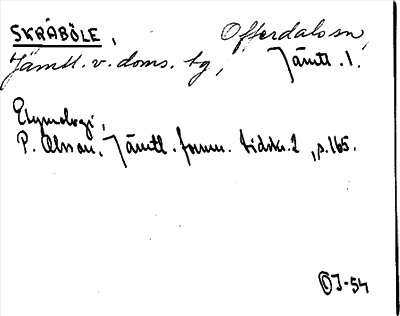 SKRÅBÖLE, Offerdals sn,
Jämtl. v. doms. tg, Jämtl. l.
Etymologi,
P. Olsson, Jämtl. fornm. tidskr. 2, p. 165.
OJ-54